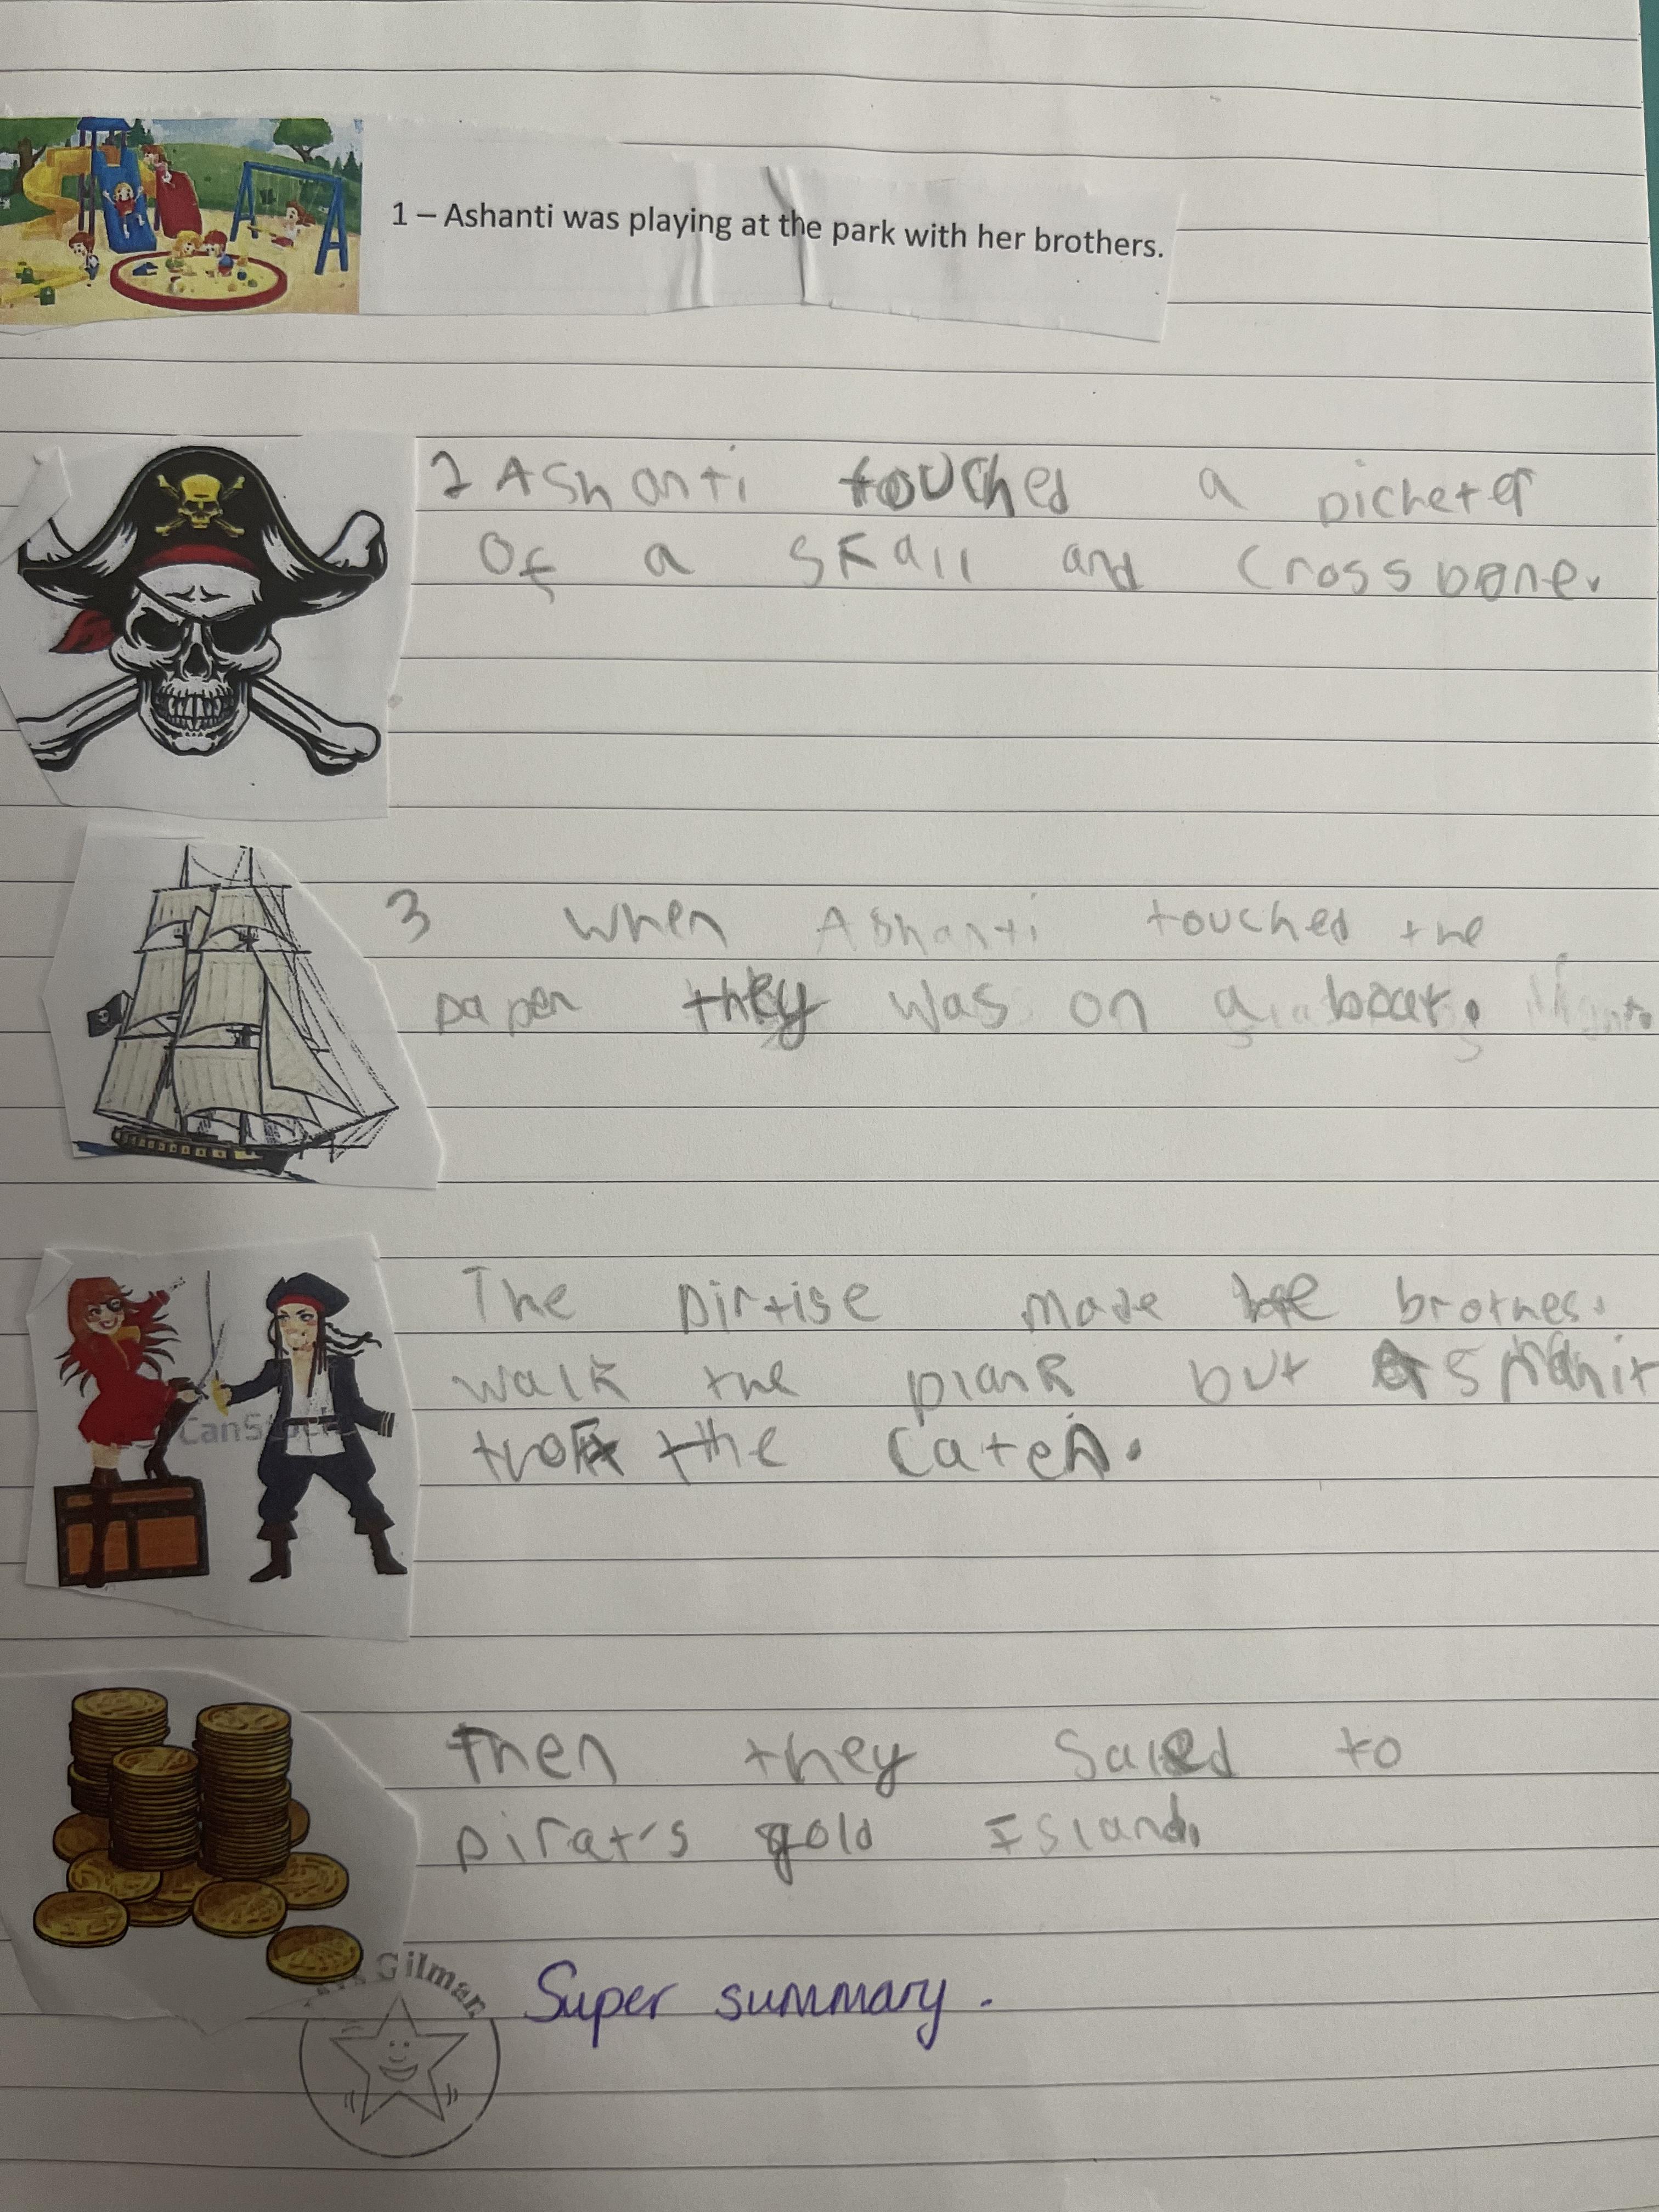 1 – Ashanti was playing at the park with her brothers.
2 Ashanti touched a picheter
of a skall and crossbone.
3 when Ashanti touched the
paper they was on a boat.
The pirtise made the brothes.
walk the plank but
the caten.
CanSt
Then they saled to
pirat's gold Island.
Gilman
Super summary.